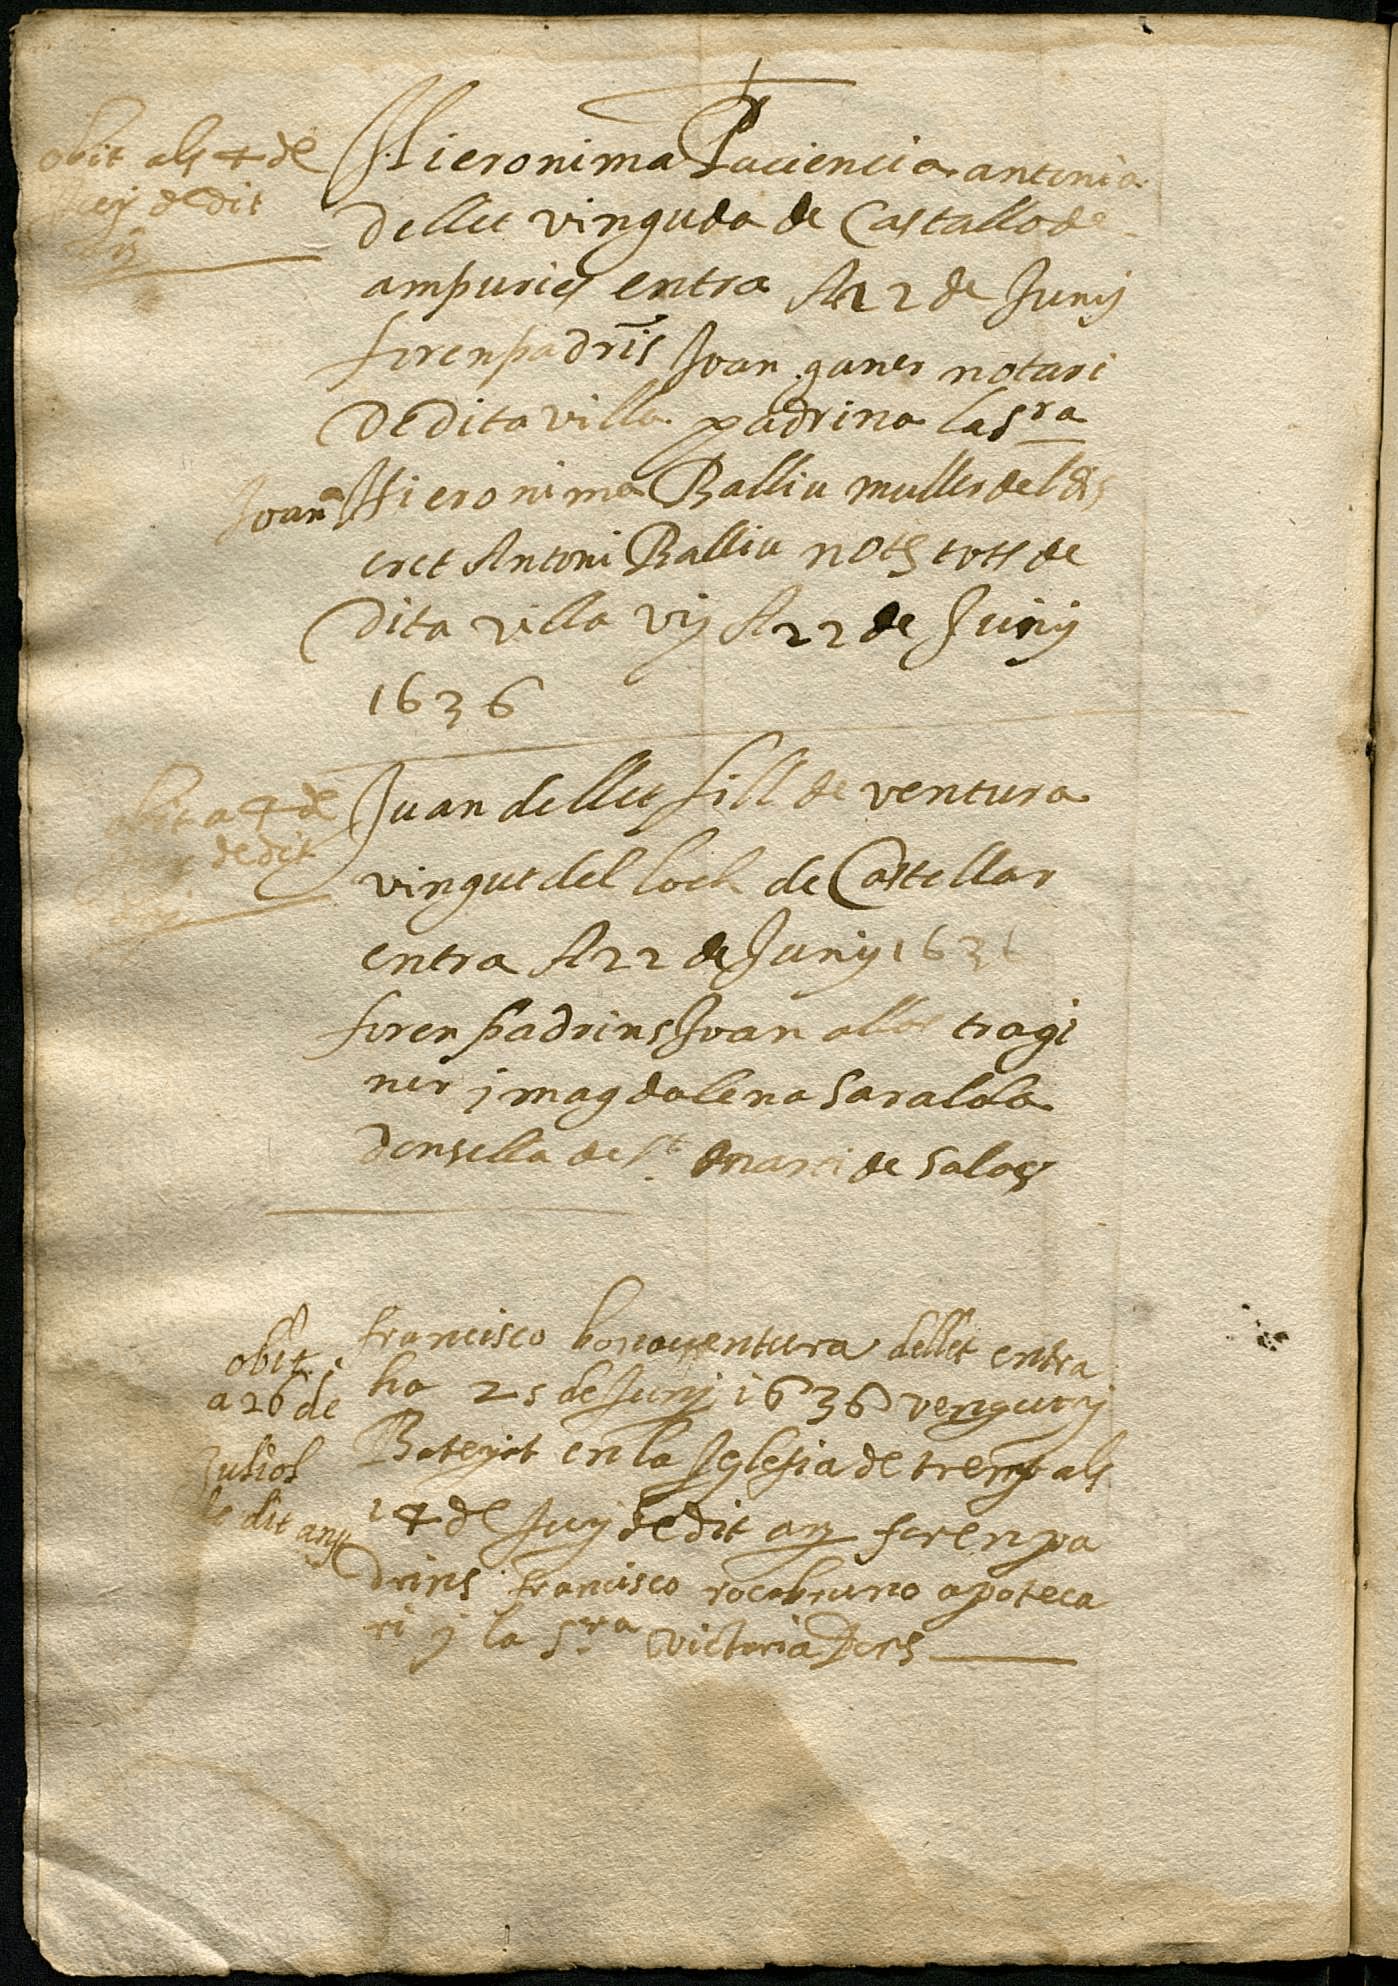 obit als 4 de
Juy de dit
Hieronima Paciencia antonia
dellet vinguda de Castallo de
ampuries entra A 22 de Juny
foren padrīs Joan ganer notari
de dita villa padrina la Sra
Joana Hieronima Balliu muller del dis
cret Antoni Balliu nots tots de
dita villa vuy A 22 de Juny
1636
obit a 4 de
Juy de dit
any
Juan dellet fill de ventura
vingut del loch de Castellar
entra A 22 de Juny 1636
foren padrins Joan aller tragi
ner j magdalena Saralda
donsella de St. marti de Salas
obit
a 26 de
Juliol
de dit any
francisco bonaventura dellet entra
ha 25 de Juny 1636 vengut y
Batejat en la Iglesia de tremp als
14 de Juy de dit any foren pa
drins francisco rocabruno apoteca
ri y la Sra victoria Pers